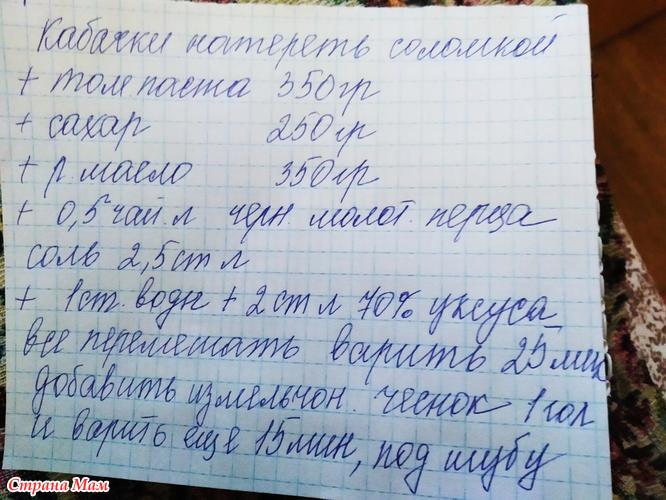 Кабачки натереть соломкой
+ том паста 350гр
+ сахар 250гр
+ р. масло 350гр
+ 0,5 чай л черн. молот. перца
соль 2,5 ст л
+ 1 ст. воды + 2 ст л 70% уксуса
все перемешать варить 25 мин
добавить измельчон. чеснок 1 гол
и варить еще 15 мин, под шубу
Страна Мам